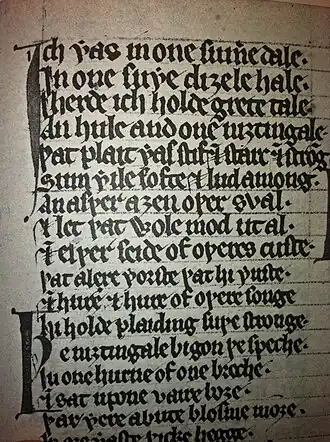 Ich ƿas in one sum̄e dale.
In one suþe diȝele hale.
Iherde ich holde grete tale.
An hule and one niȝtingale.
Þat plait ƿas stif ⁊ starc ⁊ strōg.
Sum ƿile softe ⁊ lud among.
An aſþer aȝen oþer sval.
⁊ let þat ƿole mod ut al.
⁊ eiþer seide of oþeres custe.
þat alere ƿorste þat hi ƿuste.
⁊ hure ⁊ hure of oþere songe
Hi holde plaiding suþe stronge.
Þe niȝtingale bigon þe speche.
In one hurne of one breche.
⁊ sat upone vaire boȝe.
þar ƿere abute blosme inoȝe.
In ore vaste þicke hegge.